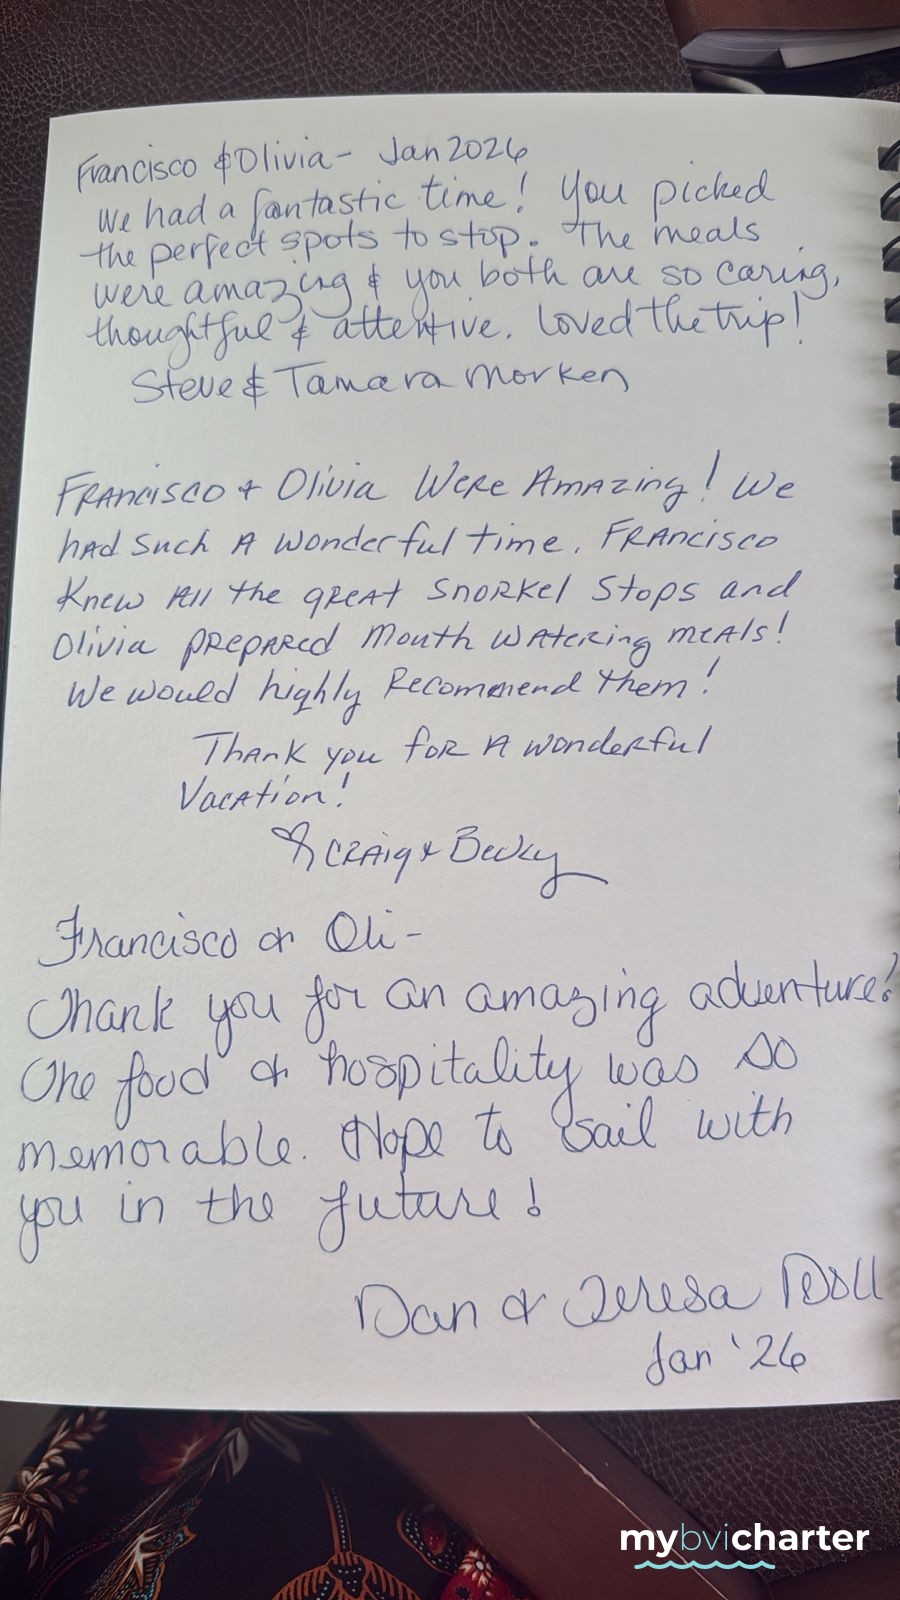 Francisco & Olivia - Jan 2026
We had a fantastic time! You picked
the perfect spots to stop. The meals
were amazing & you both are so caring,
thoughtful & attentive. Loved the trip!
Steve & Tamara Morken
Francisco + Olivia Were Amazing! We
had such A wonderful time. Francisco
Knew All the great snorkel stops and
Olivia prepared mouth watering meals!
We would highly Recommend them!
Thank you for A wonderful
Vacation!
Craig + Becky
Francisco & Oli -
Thank you for an amazing adventure!
The food & hospitality was so
memorable. Hope to sail with
you in the future!
Dan & Teresa Doll
Jan '26
mybvicharter